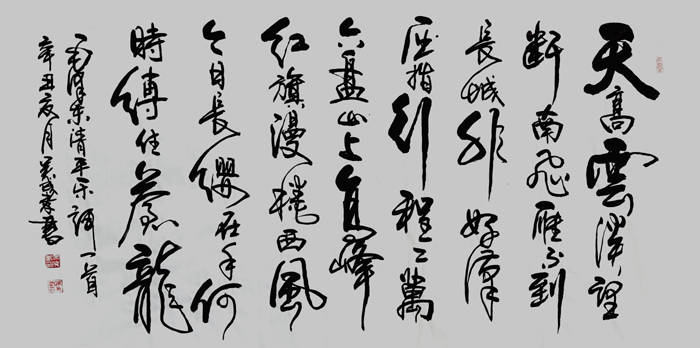 天高雲淡望
斷南飛雁不到
長城非好漢
屈指行程二萬
六盤山上高峰
紅旗漫捲西風
今日長纓在手何
時縛住蒼龍
毛澤東清平樂詞一首
辛丑夏月